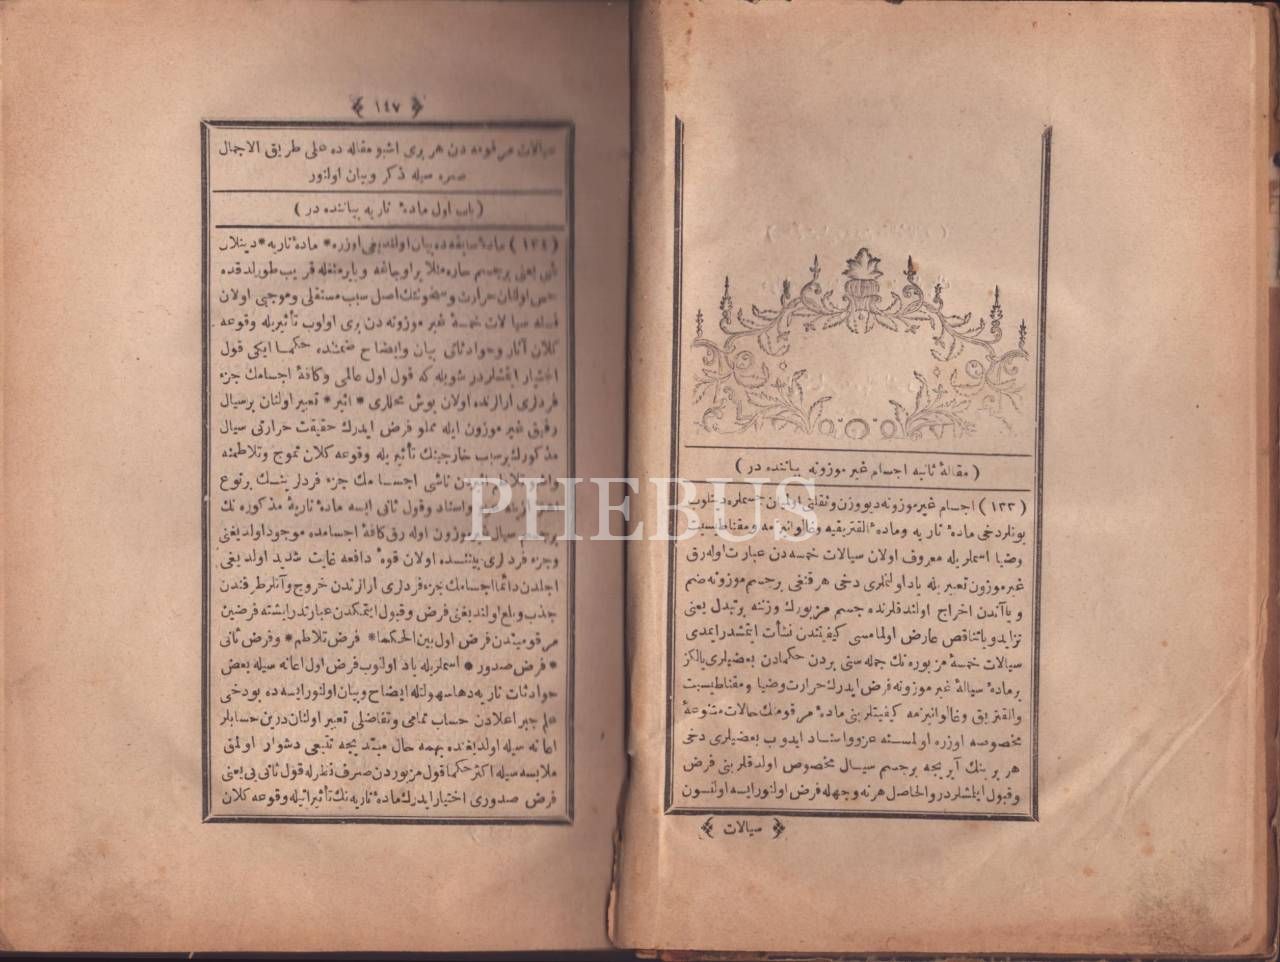 ( مقالهٔ ثانیه اجسام غیر موزونه بیاننده در )
( ١٣٣ ) اجسام غیر موزونه دیو وزن و ثقلتی اولمیان جسملره دینلوب
بونلردخی مادهٔ ناریه و مادهٔ الفتریقیه وغالوانیزمه ومقناطیسیت
وضیا اسملریله معروف اولان سیالات خمسه دن عبارت اوله رق
غیر موزون تعبیریله یاد اولنملری دخی هر قنغی بر جسم موزونه ضم
و یا آندن اخراج اولندقلرنده جسم مزبورك وزننه بر تبدل یعنی
تزاید ویا تناقص عارض اولمامسی کیفیتندن نشأت ایتمشدر ایمدی
سیالات خمسهٔ مزبوره نك جمله سنی بردن حکمادن بعضیلری یالکز
بر مادهٔ سیالهٔ غیر موزونه فرض ایدرك حرارت وضیا ومقناطیسیت
والفتریق وغالوانیزمه کیفیتلرینی مادهٔ مرقومه نك حالات متنوعهٔ
مخصوصه اوزره اولمسنه عزو واسناد ایدوب بعضیلری دخی
هر برینك آیریجه بر جسم سیال مخصوص اولدقلرینی فرض
وقبول ایلمشلردر والحاصل هر نه وجهله فرض اولنور ایسه اولنسون
سیالات
١٤٧
سیالات مرقومه دن هر بری اشبو مقاله ده علی طریق الاجمال
صره سیله ذکر و بیان اولنور
( باب اول مادهٔ ناریه بیاننده در )
( ١٣٤ ) مادهٔ سابقه ده بیان اولندیغی اوزره * مادهٔ ناریه * دینلان
شی یعنی بر جسم حاره مثلا بر اوجاغه ویا بر مثقله قریب طورلدقده
حس اولنان حرارت وسخونتك اصل سبب مستقلی وموجبی اولان
نسنه سیالات خمسهٔ غیر موزونه دن بری اولوب تأثیریله وقوعه
کلان آثار وحوادثاتی بیان وایضاح ضمننده حکما ایکی قول
اختیار ایتمشلردر شویله که قول اول عالمی وکافهٔ اجسامك جزء
فردلری ارالرنده اولان بوش محللری * اثیر * تعبیر اولنان بر سیال
رقیق غیر موزون ایله مملو فرض ایدرك حقیقت حرارتی سیال
مذکورك بر سبب خارجینك تأثیریله وقوعه کلان تموج وتلاطمنه
ناشی اجسامك جزء فردلرینك بر نوع
واسناد وقول ثانی ایسه مادهٔ ناریهٔ مذکوره نك
بر جسم سیال غیر موزون اوله رق کافهٔ اجسامده موجود اولدیغی
وجزء فردلری بیننده اولان قوهٔ دافعه غایت شدید اولدیغی
اجلدن دائما اجسامك جزء فردلری ارالرندن خروج وآنلر طرفندن
جذب وبلع اولندیغی فرض وقبول ایتمکدن عبارتدر ایشته فرضین
مرقومیندن فرض اول بین الحکما * فرض تلاطم * وفرض ثانی
* فرض صدور * اسملریله یاد اولنوب فرض اول اعانه سیله بعض
حوادثات ناریه دها سهولتله ایضاح وبیان اولنور ایسه ده بو دخی
علم جبر اعلادن حساب تمامی وتفاضلی تعبیر اولنان درین حسابلر
اعانه سیله اولدیغنده بهمه حال مبتدییجه تتبعی دشوار اولمق
ملابسه سیله اکثر حکما قول مزبوردن صرف نظرله قول ثانی بی یعنی
فرض صدوری اختیار ایدرك مادهٔ ناریه نك تأثیراتیله وقوعه کلان
PHEBUS